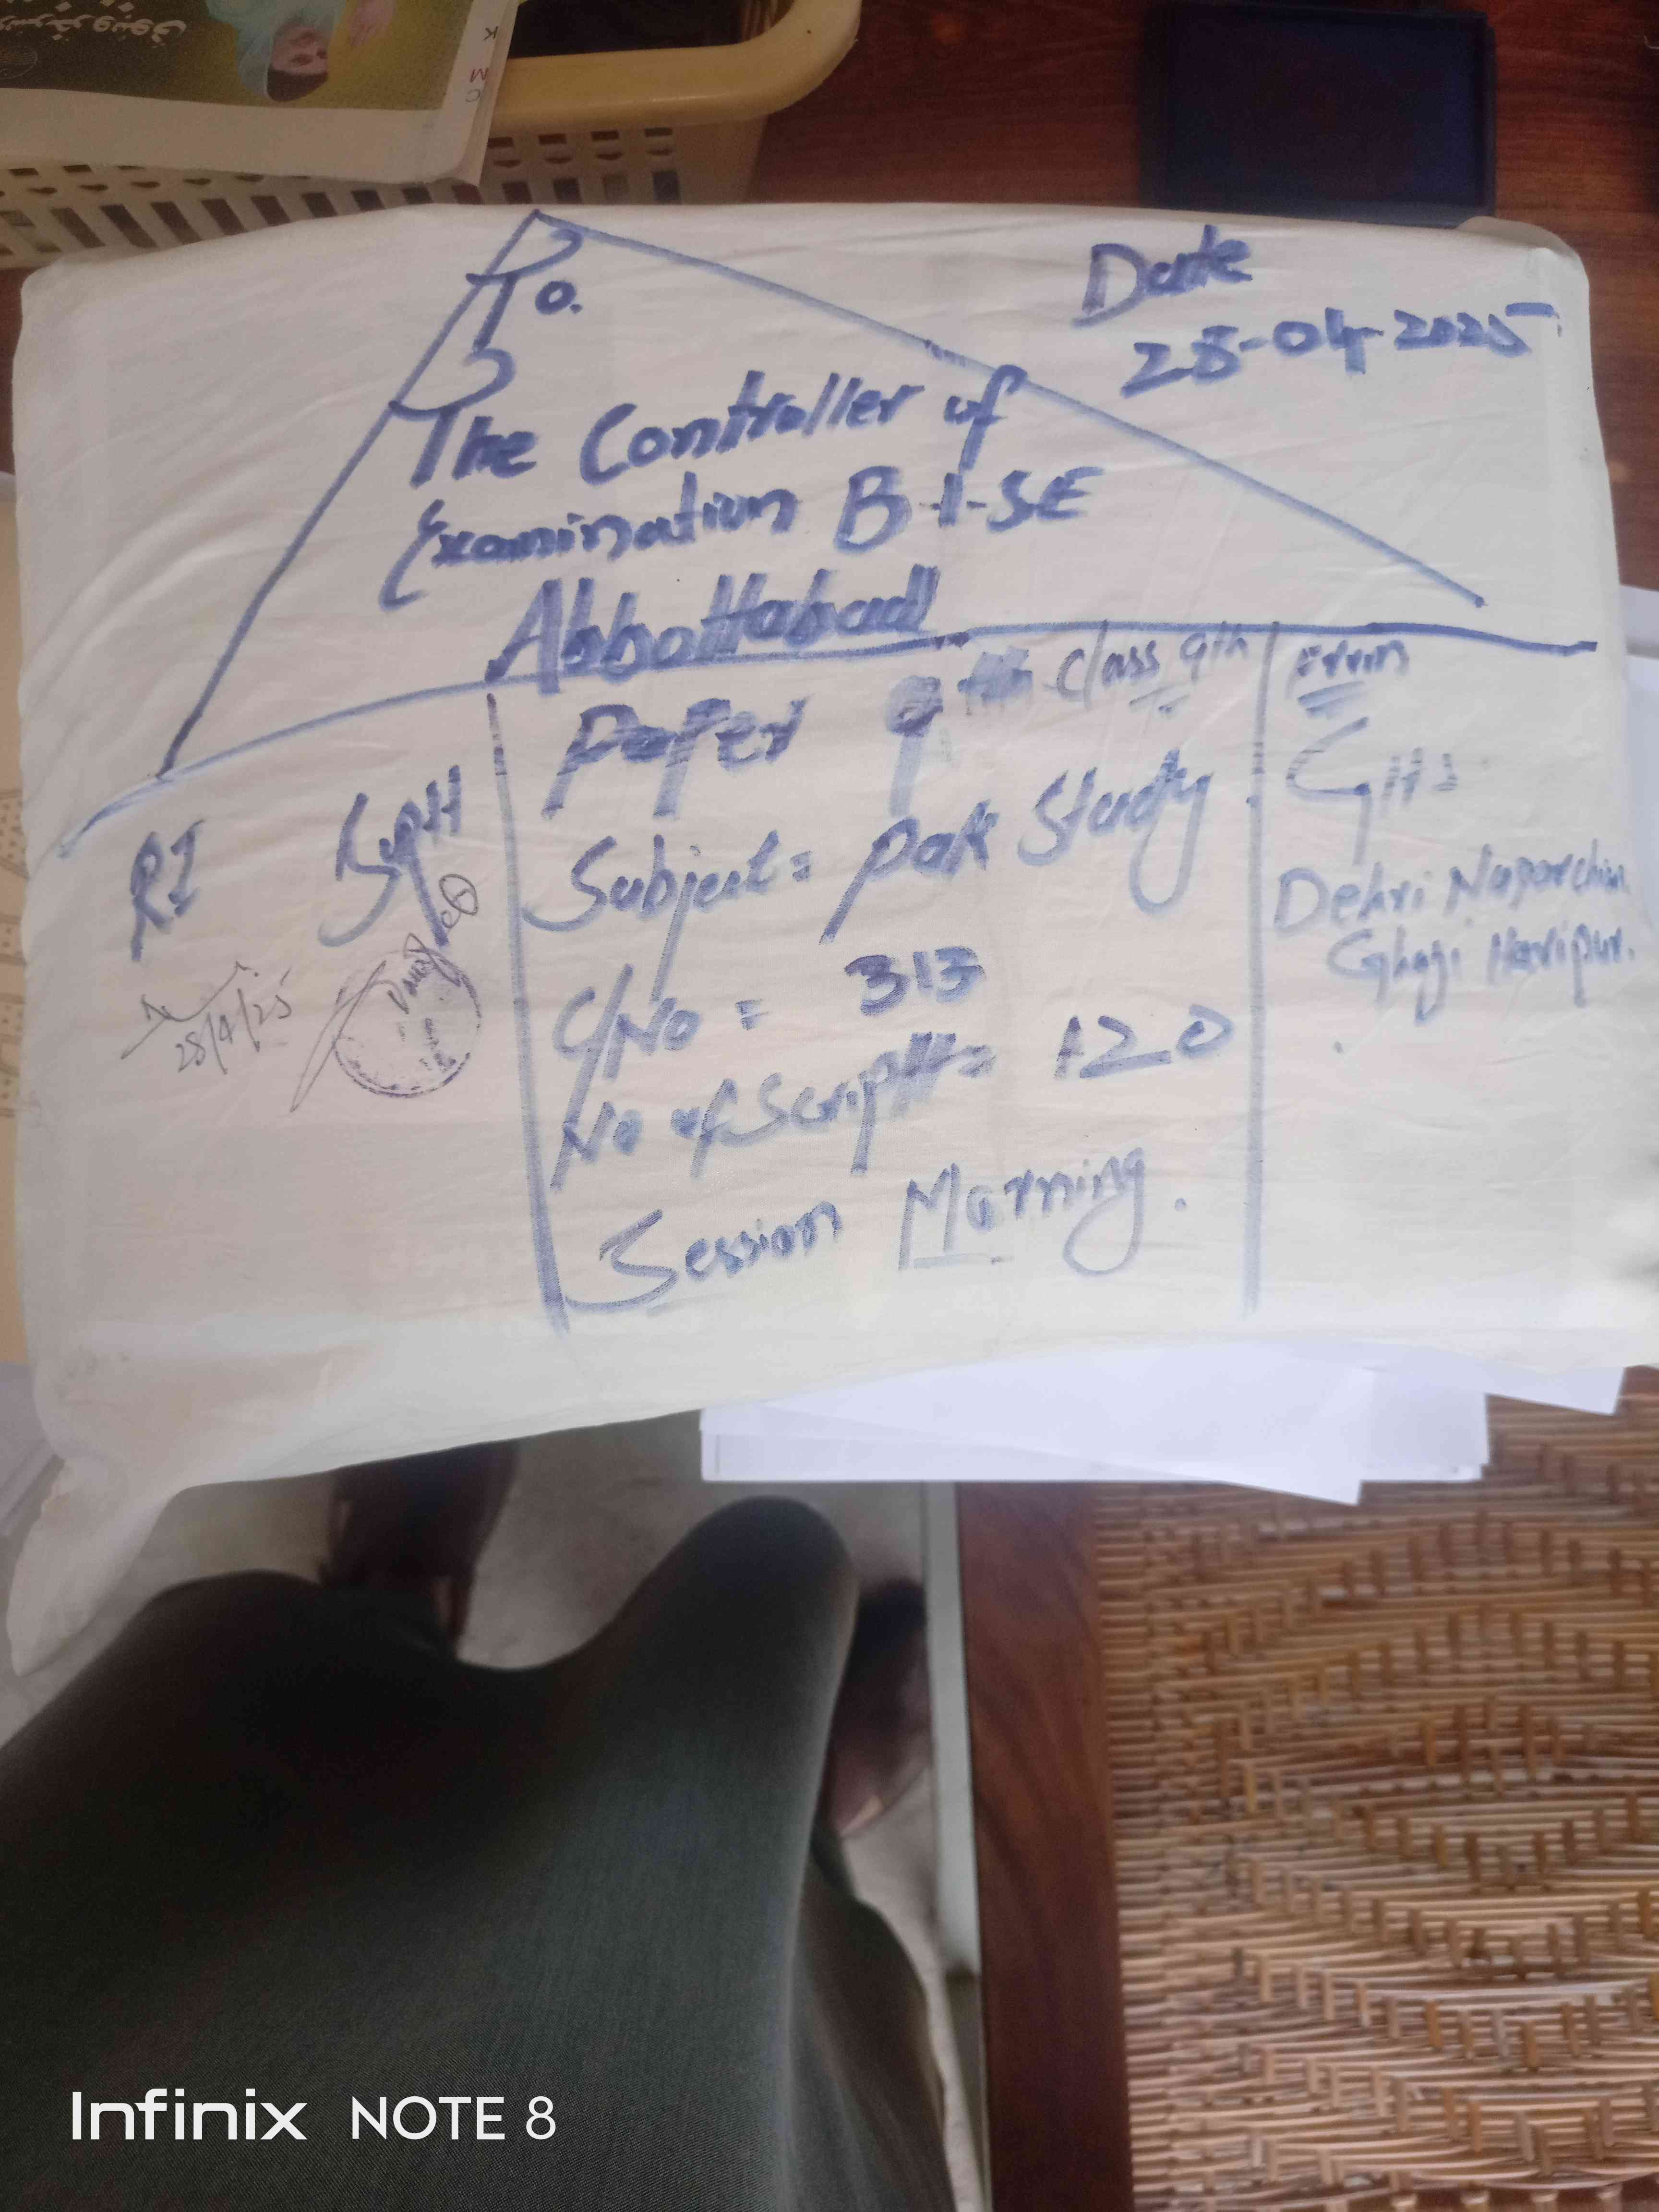 Date
28-04-2025
To.
The Controller of
Examination B-I-SE
Abbottabad
Paper 9th Class 9th
Subject = Pak Study
C/No = 313
No of Script = 120
Session Morning.
From
GHS
Dehri
Ghazi Haripur.
RI Supdt
28/4/25
K
M
C
Infinix NOTE 8